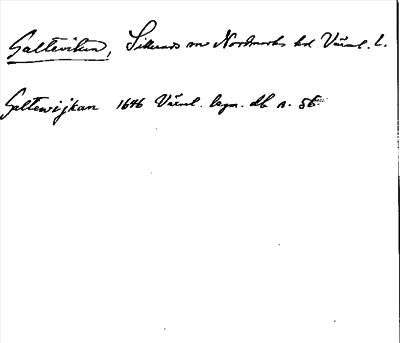 Saltevikun, Silleruds sn Nordmarks hd Värml. l.
Saltewijkan 1646 Värml. lägm. db s. 56